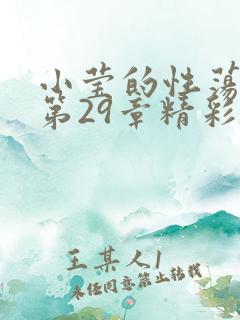 小莹的性荡
第29章精彩
王某人1
未经同意禁止转载